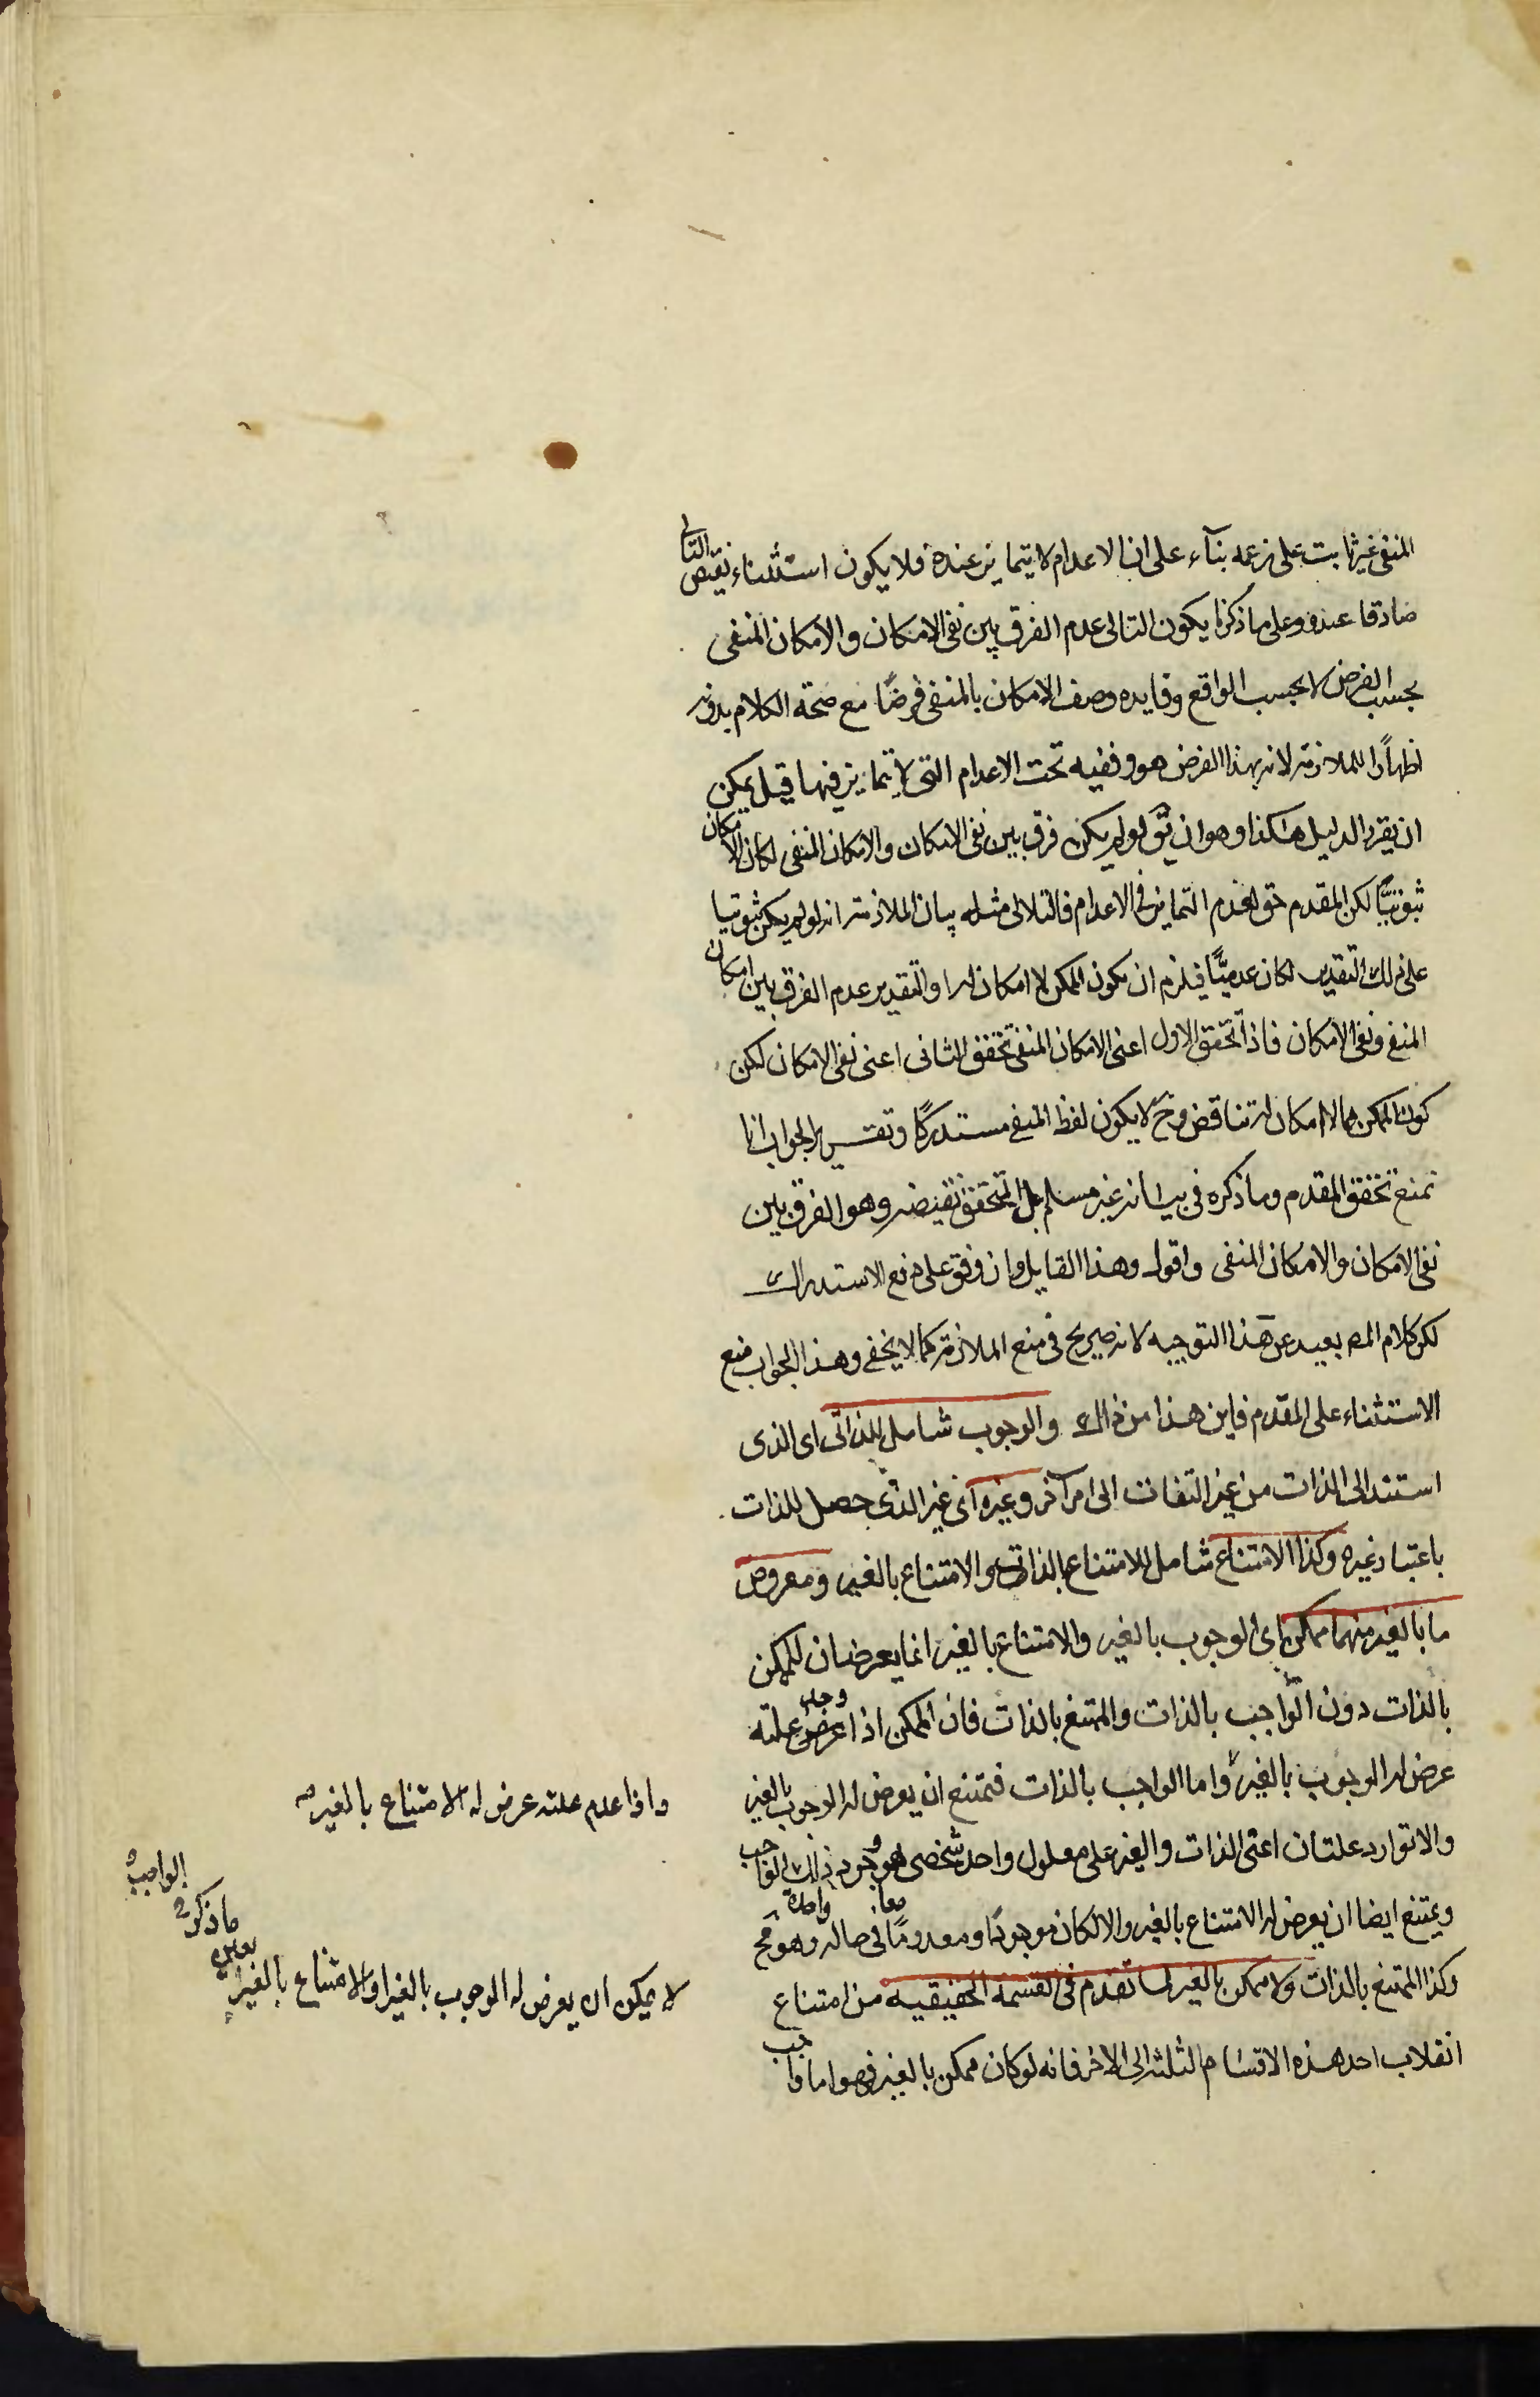 المنفى غير ثابت على زعمه بنآء على ان الاعدام لا يتمايز عنده فلا يكون استثناء نقيض التالى
صادقا عنده وعلى ما ذكرنا يكون التالى عدم الفرق بين نفى الامكان والامكان المنفى
بحسب الفرض لا بحسب الواقع وفايده وصف الامكان بالمنفى فرضًا مع صحة الكلام بدونه
اظهارًا للملازمة لانه بهذا الفرض هو وفقيه تحت الاعدام التى لا يتمايز فيها قيل يمكن
ان يقرر الدليل هكذا وهو ان يق لو لم يكن فرق بين نفى الامكان والامكان المنفى لكان الامكان
ثبوتيًّا لكن المقدم حق لعدم التمايز فى الاعدام فالتالى مثله بيان الملازمة انه لو لم يكن ثبوتيا
على ذلك التقدير لكان عدميًّا فيلزم ان يكون الممكن لا امكان له اذ التقدير عدم الفرق بين امكان
المنفى ونفى الامكان فاذا تحقق الاول اعنى الامكان المنفى تحقق الثانى اعنى نفى الامكان لكن
كون الممكن مما لا امكان له تناقض وح لا يكون لفظ المنفى مستدركًا وتقرير الجواب انا
نمنع تحقق المقدم وما ذكره فى بيانه غير مسلم بل المتحقق نقيضه وهو الفرق بين
نفى الامكان والامكان المنفى واقول وهذا القايل وان وفق على دفع الاستدراك
لكن كلام المص بعيد عن هذا التوجيه لانه صريح فى منع الملازمة كما لا يخفى وهذا الجواب منع
الاستثناء على المقدم فاين هذا من ذاك والوجوب شامل للذاتى اى الذى
استند الى الذات من غير التفات الى امر آخر وغيره اى غير الذى حصل للذات
باعتبار غيره وكذا الامتناع شامل للامتناع بالذات والامتناع بالغير ومعروض
ما بالغير منهما ممكن اى الوجوب بالغير والامتناع بالغير انما يعرضان للممكن
بالذات دون الواجب بالذات والممتنع بالذات فان الممكن اذا عرض وجد علته
عرض له الوجوب بالغير واما الواجب بالذات فيمتنع ان يعرض له الوجوب بالغير
والا توارد علتان اعنى الذات والغير على معلول واحد شخصى هو وجود ذلك الواجب
ويمتنع ايضا ان يعرض له الامتناع بالغير والا لكان موجودًا ومعدومًا معا فى حاله واحدة وهو مح
وكذا الممتنع بالذات ولا ممكن بالغير لما تقدم فى القسمة الحقيقيه من امتناع
انقلاب احد هذه الاقسام الثلثه الى الاخر فانه لو كان ممكن بالغير فهو اما واجب
واذا عدم علته عرض له الامتناع بالغير صه
لا يمكن ان يعرض له الوجوب بالغير او الامتناع بالغير
ما ذكر
الواجب